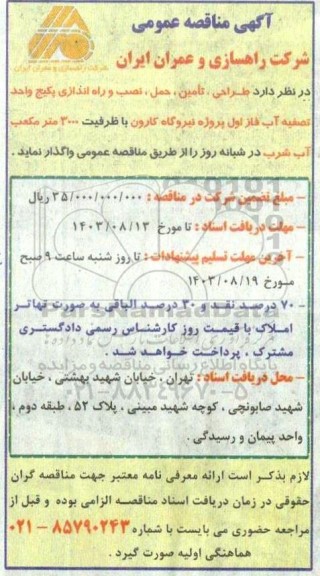 آگهی مناقصه عمومی
شرکت راهسازی و عمران ایران
شرکت راهسازی و عمران ایران
در نظر دارد طراحی ، تأمین ، حمل ، نصب و راه اندازی پکیج واحد
تصفیه آب فاز اول پروژه نیروگاه کارون با ظرفیت ۳۰۰۰ متر مکعب
آب شرب در شبانه روز را از طریق مناقصه عمومی واگذار نماید .
– مبلغ تضمین شرکت در مناقصه : ۳۵/۰۰۰/۰۰۰/۰۰۰ ریال
– مهلت دریافت اسناد : تا مورخ ۱۴۰۳/۰۸/۱۳
– آخرین مهلت تسلیم پیشنهادات : تا روز شنبه ساعت ۹ صبح
مورخ ۱۴۰۳/۰۸/۱۹
- ۷۰ درصد نقد و ۳۰ درصد الباقی به صورت تهاتر
املاک با قیمت روز کارشناس رسمی دادگستری
مشترک ، پرداخت خواهد شد .
– محل دریافت اسناد : تهران ، خیابان شهید بهشتی ، خیابان
شهید صابونچی ، کوچه شهید مبینی ، پلاک ۵۲ ، طبقه دوم ،
واحد پیمان و رسیدگی .
لازم بذکر است ارائه معرفی نامه معتبر جهت مناقصه گران
حقوقی در زمان دریافت اسناد مناقصه الزامی بوده و قبل از
مراجعه حضوری می بایست با شماره ۸۵۷۹۰۲۴۳ – ۰۲۱
هماهنگی اولیه صورت گیرد .
ParsNamadData